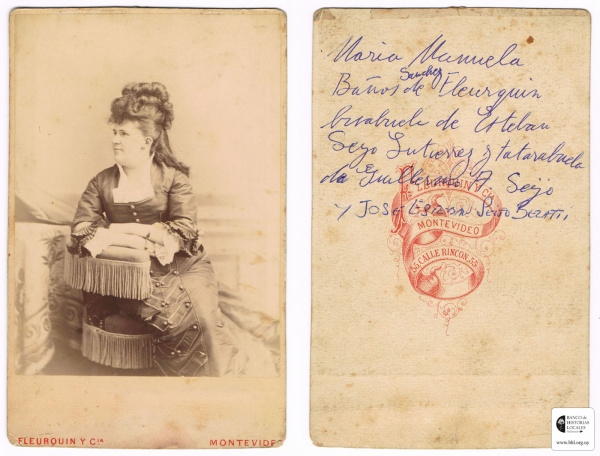 FLEURQUIN Y CIA
MONTEVIDEO
Maria Manuela
Sanchez
Baños de Fleurquin
bisabuela de Esteban
Seijo Gutierrez y tatarabuela
de Guillermo A Seijo
Y JOSÉ ESTEBAN SEIJO
FLEURQUIN Y CIA
MONTEVIDEO
55 CALLE RINCON 55
BANCO de
HISTORIAS
LOCALES
www.bhl.org.uy